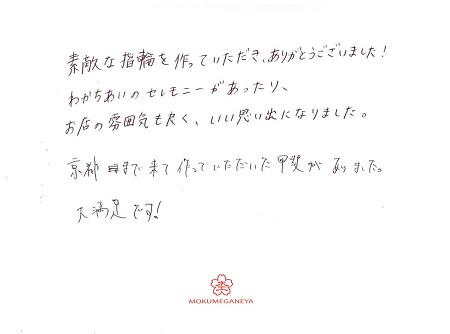 素敵な指輪を作っていただき、ありがとうございました！
わかちあいのセレモニーがあったり、
お店の雰囲気も良く、いい思い出になりました。
京都まで来て作っていただいた甲斐がありました。
大満足です！
MOKUMEGANEYA